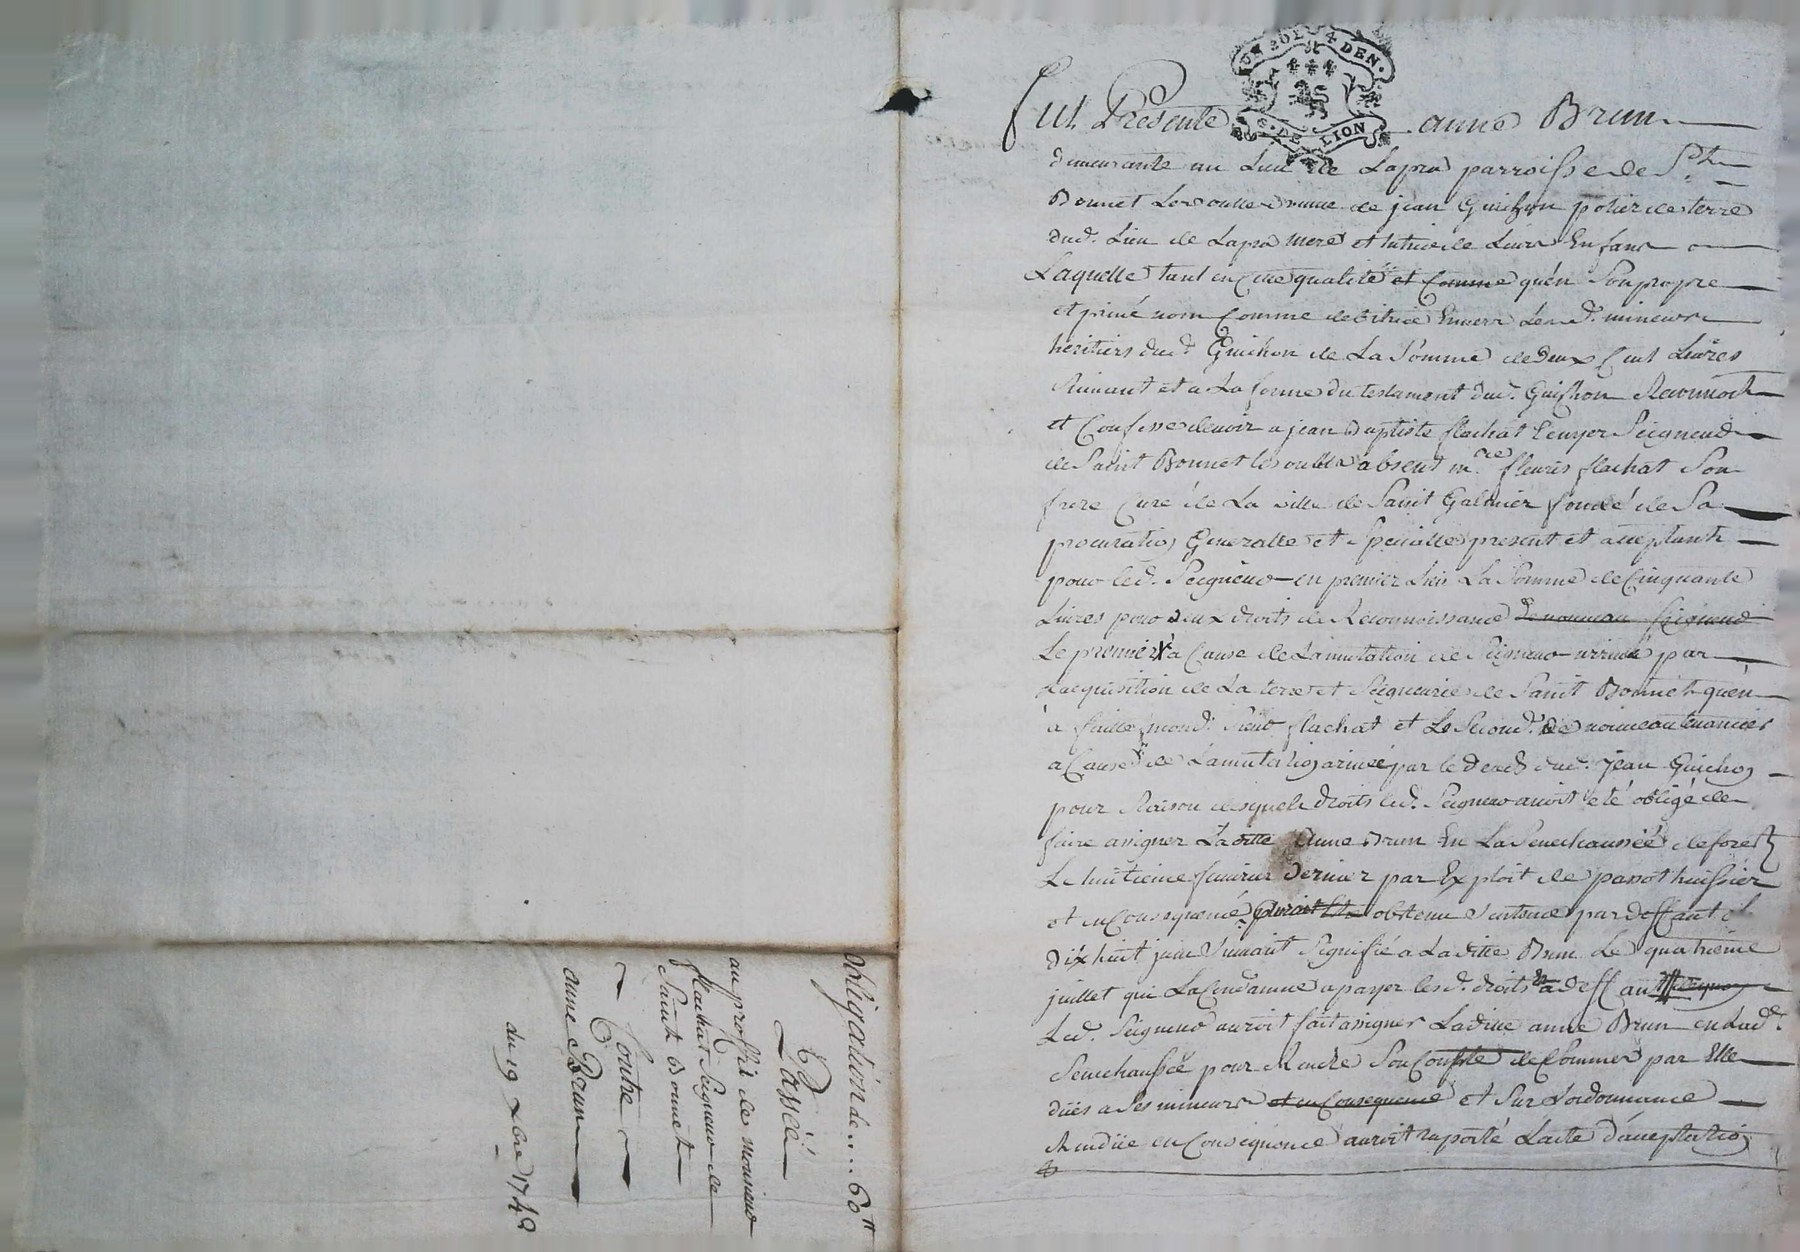 UN SOL 4 DEN.
G. DE LION
fut Presente anne Brun
demeurante au Lieu de Lapra parroisse de St
Bonnet Les oulles veuve de jean Guichon potier de terre
dud. Lieu de Lapra mere et tutrice de Leurs Enfans
Laquelle tant en Cette qualité et Comme qu'en Son propre
et privé nom Comme debitrice Envers Lesd. mineurs
heritiers dud. Guichon de La Somme de deux Cent Livres
Suivant et a La forme du testament dud. Guichon Reconnoit
et Confesse devoir a jean Baptiste flachat Ecuyer Seigneur
de Saint Bonnet les oulles absent mre fleuris flachat Son
frere Curé de La ville de Saint Galmier fondé de Sa
procuration Generalle et Specialle present et acceptant
pour led. Seigneur en premier Lieu La Somme de Cinquante
Livres pour deux droits de Reconnoissance de nouveau Seigneur
Le premier a Cause de La mutation de Seigneur arrivée par
Lacquisition de La terre et Seigneurie de Saint Bonnet qu'en
a faitte mond. Sieur flachat et Le Second. de nouveau tenancier
a Cause de La mutation arrivée par le deces dud. jean Guichon
pour Raison desquels droits led. Seigneur auroit été obligé de
faire assigner La ditte Anne Brun En La Senechaussée de forest
Le huitieme fevrier dernier par Exploit de huissier
et en Consequence obtenu Sentence par deffaut Le
dix huit juin Suivant Signifié a La ditte Brun Le quatrieme
juillet qui La Condamne a payer lesd. droits a deff au
Led. Seigneur auroit fait assigner Laditte anne Brun en Lad.
Senechaussée pour Rendre Son Compte de Sommes par Elle
dües a Ses mineurs et en Consequence et Sur L'ordonnance
Rendüe en Consequence auroit raporté L'acte d'acceptation
obligation de .... 60 tt
Passée
au proffit de monsieur
flachat Seigneur de
Saint Bonnet
Contre
anne Brun
du 19 bre 1748